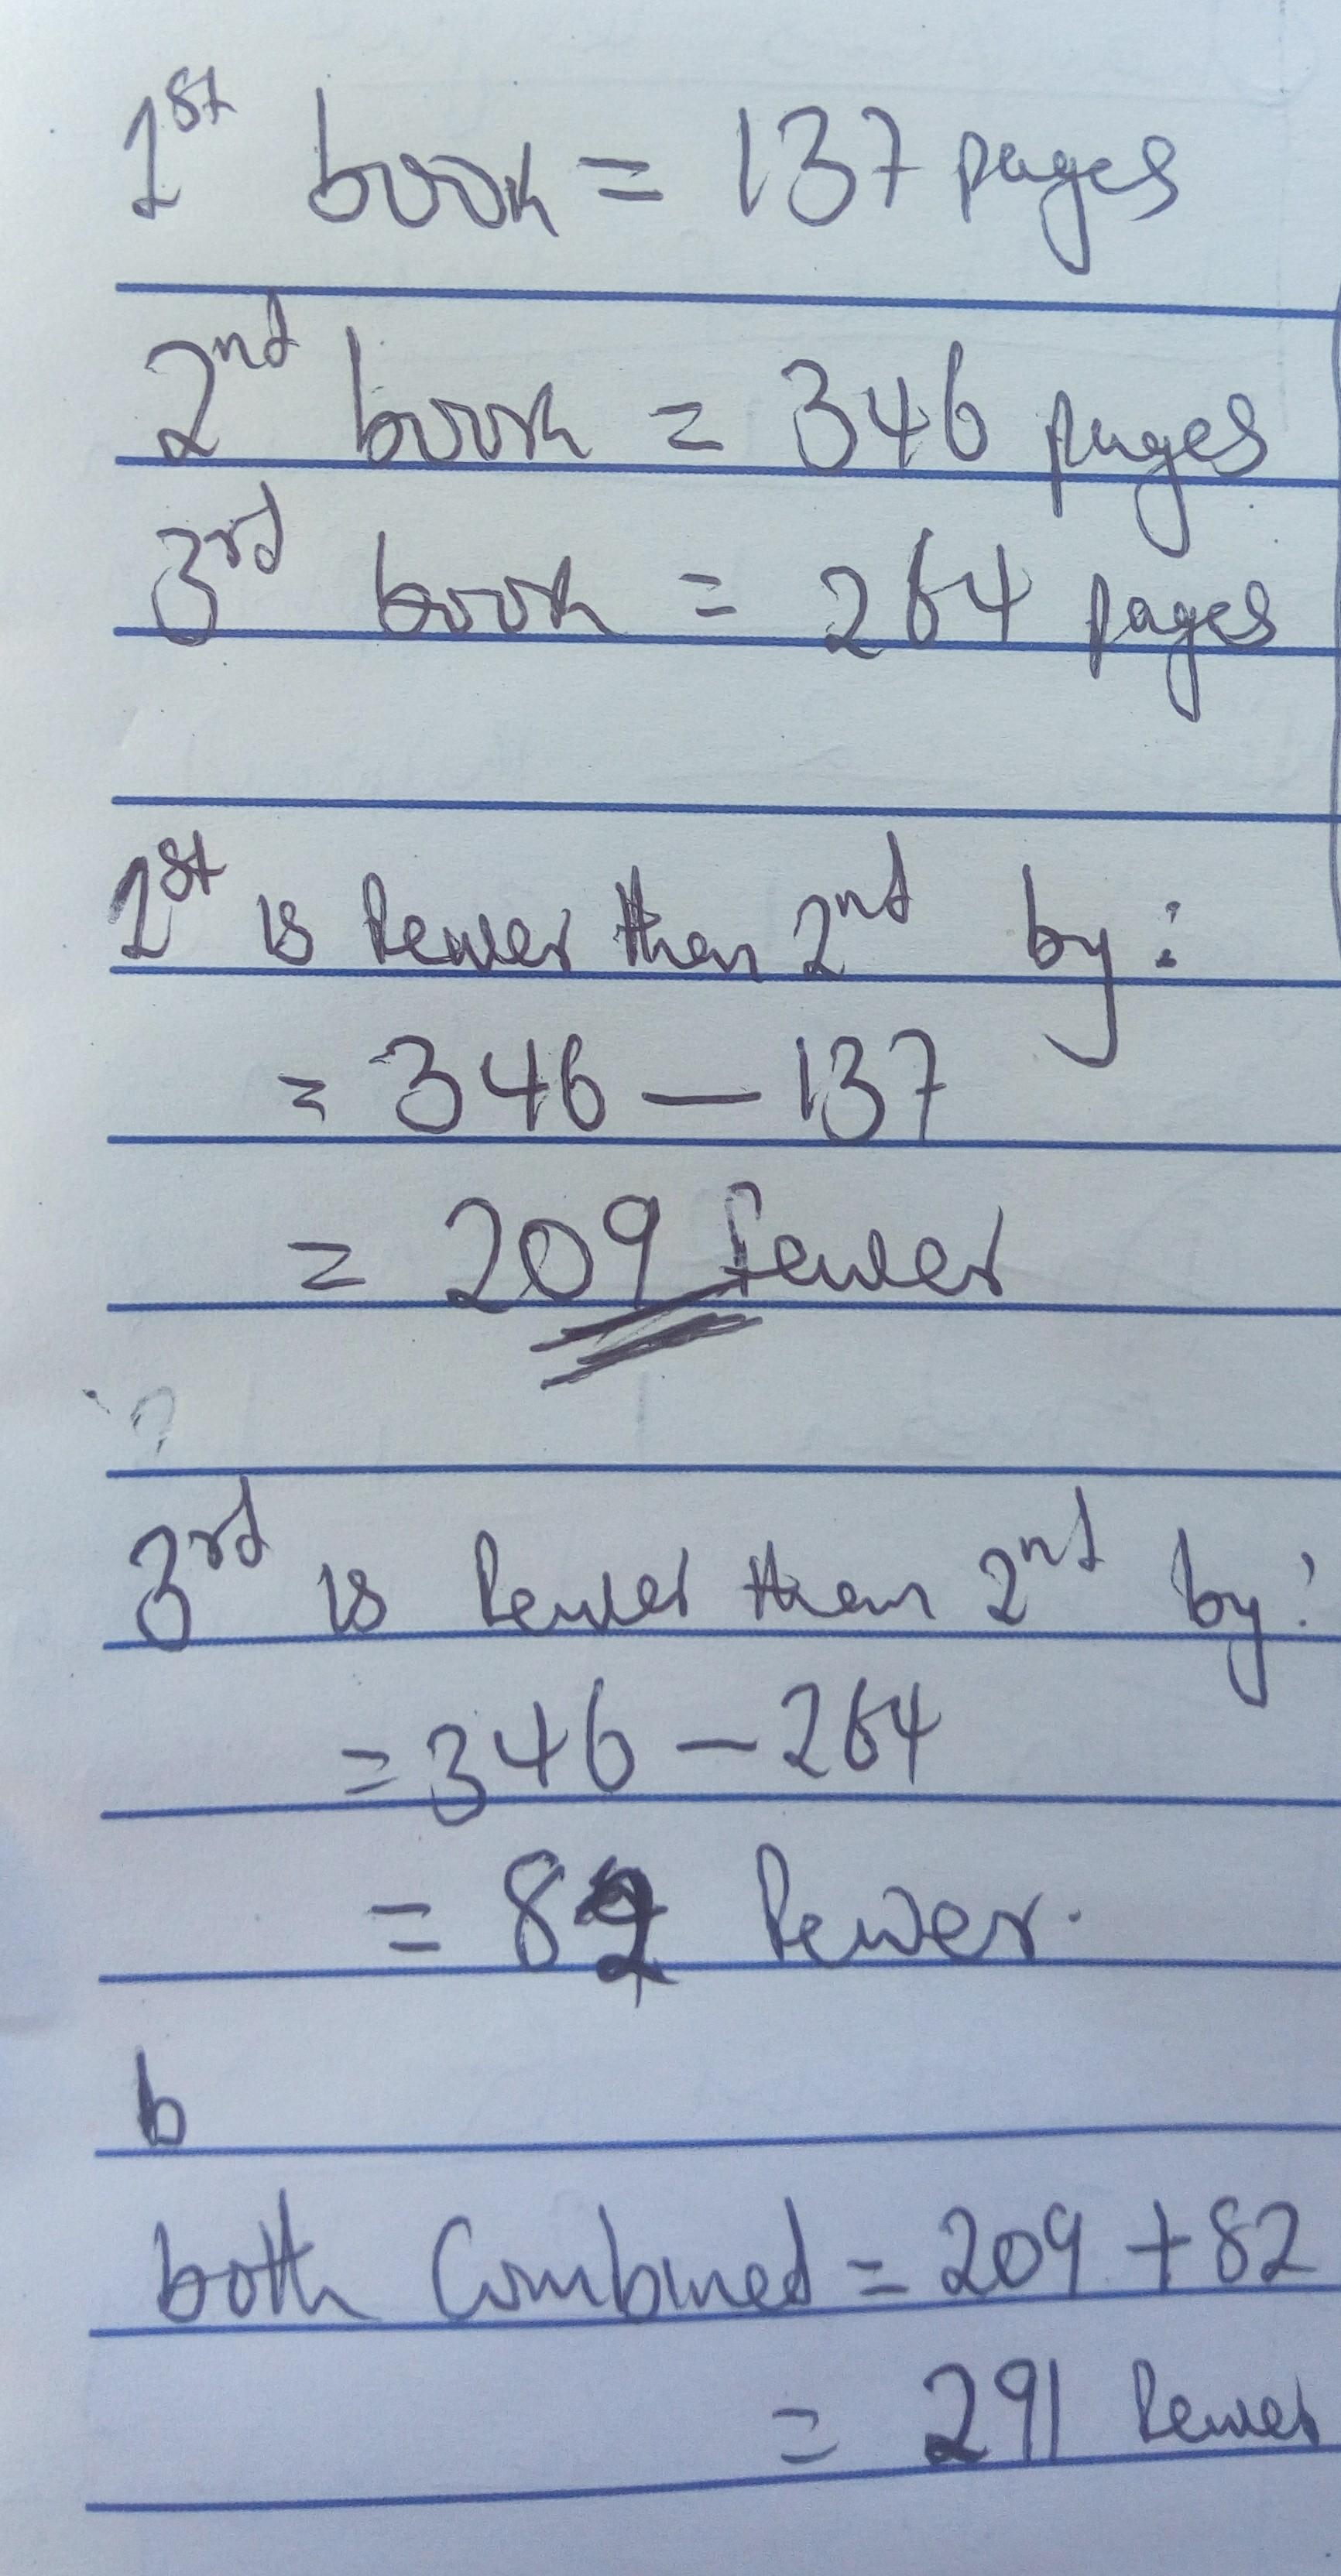 1st book = 137 pages
2nd book = 346 pages
3rd book = 264 pages
1st is fewer than 2nd by:
= 346 - 137
= 209 fewer
?
3rd is fewer than 2nd by:
= 346 - 264
= 82 fewer.
b
both combined = 209 + 82
= 291 fewer